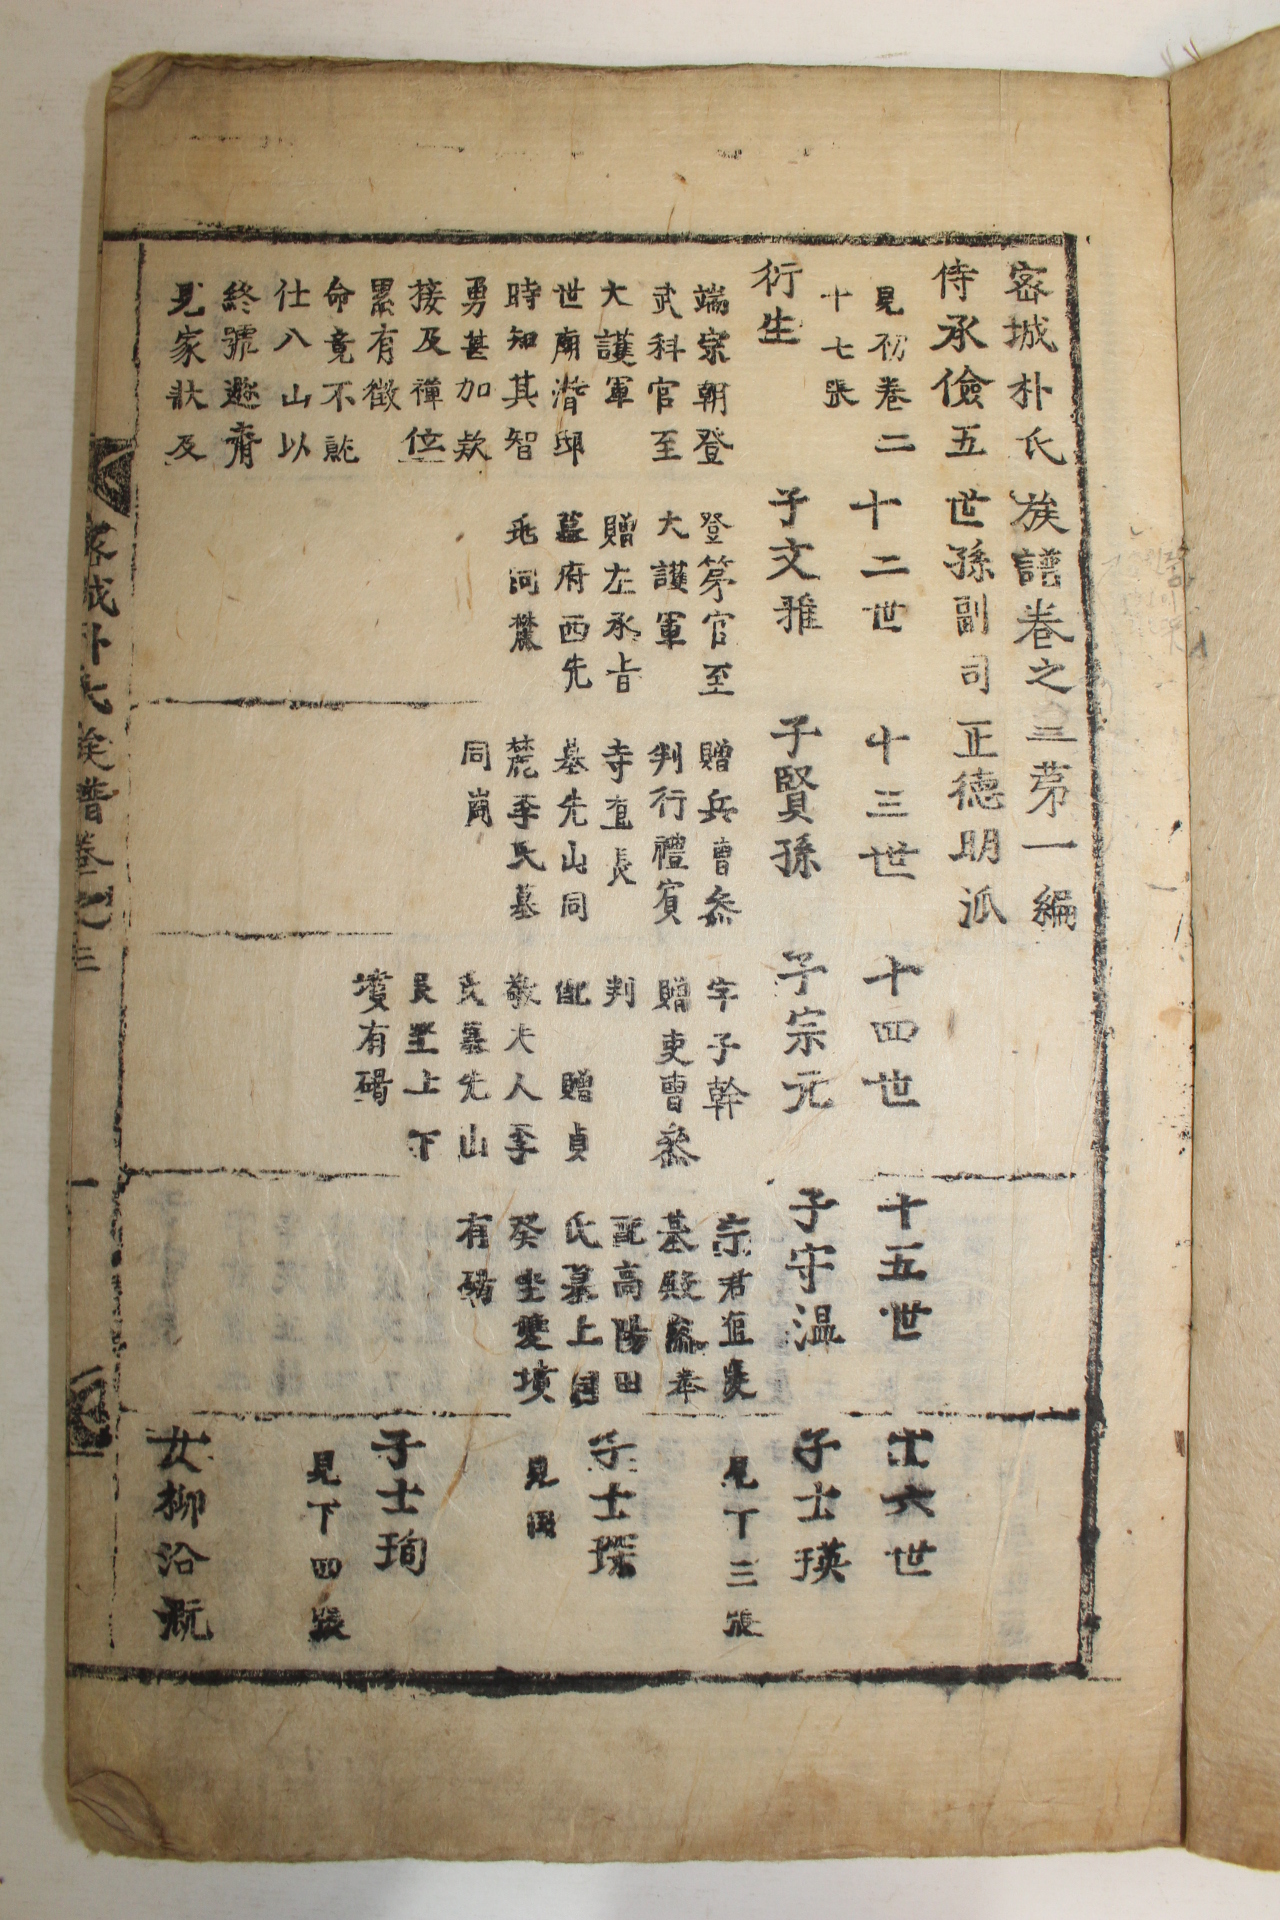 密城朴氏族譜卷之三第一編
侍承儉五世孫副司正德明派
見初卷二
十七張
衍生
端宗朝登
武科官至
大護軍
世廟潛邸
時知其智
勇甚加欵
接及禪位
累有徵
命竟不就
仕八山以
終號遯齋
見家狀及
十二世
子文雅
登第官至
大護軍
贈左承旨
墓府西先
兆同麓
十三世
子賢孫
贈兵曹參
判行禮賓
寺直長
墓先山同
麓李氏墓
同崗
十四世
子宗元
字子幹
贈吏曹參
判
配 贈貞
敬夫人李
氏墓先山
艮坐上下
墳有碣
十五世
子守温
宗君直長
基殿參奉
配高陽田
氏墓上同
癸坐雙墳
有碣
十六世
子士瑛
見下三張
子士琛
見同
子士珣
見下四張
女柳沿溉
密城朴氏族譜卷之三
一